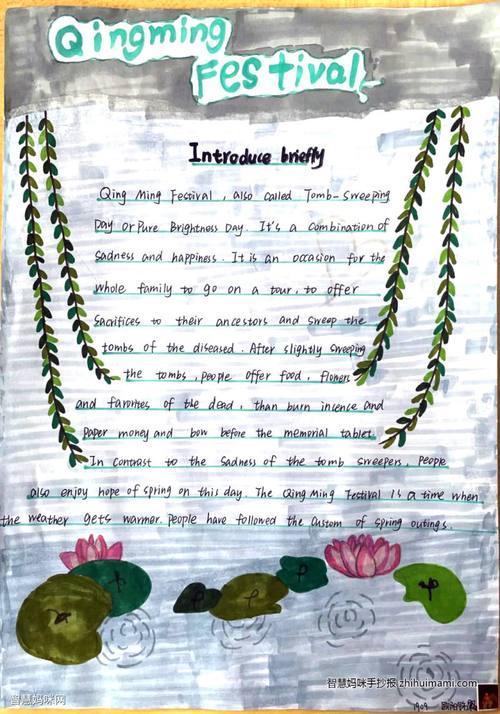 Qingming
Festival
Introduce briefly
Qing Ming Festival, also called Tomb-Sweeping
Day or Pure Brightness Day. It's a combination of
sadness and happiness. It is an occasion for the
whole family to go on a tour, to offer
sacrifices to their ancestors and sweep the
tombs of the diseased. After slightly sweeping
the tombs, people offer food, flowers
and favorites of the dead, than burn incence and
paper money and bow before the memorial tablet.
In contrast to the sadness of the tomb sweepers, people
also enjoy hope of spring on this day. The Qing Ming Festival is a time when
the weather gets warmer. people have followed the custom of spring outings.
智慧妈咪手抄报 zhihuimami.com
智慧妈咪网
1909